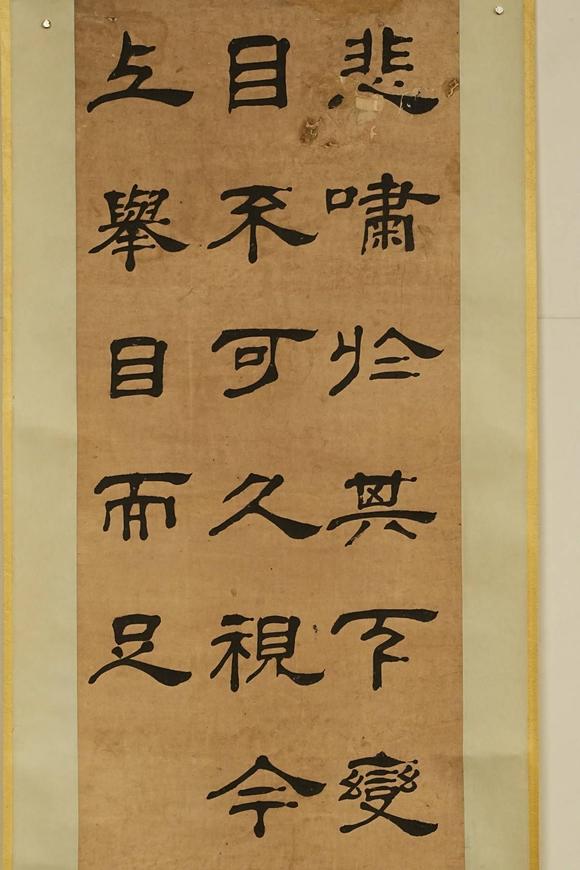 悲嘯於其下變
目不可久視今
上舉目而足